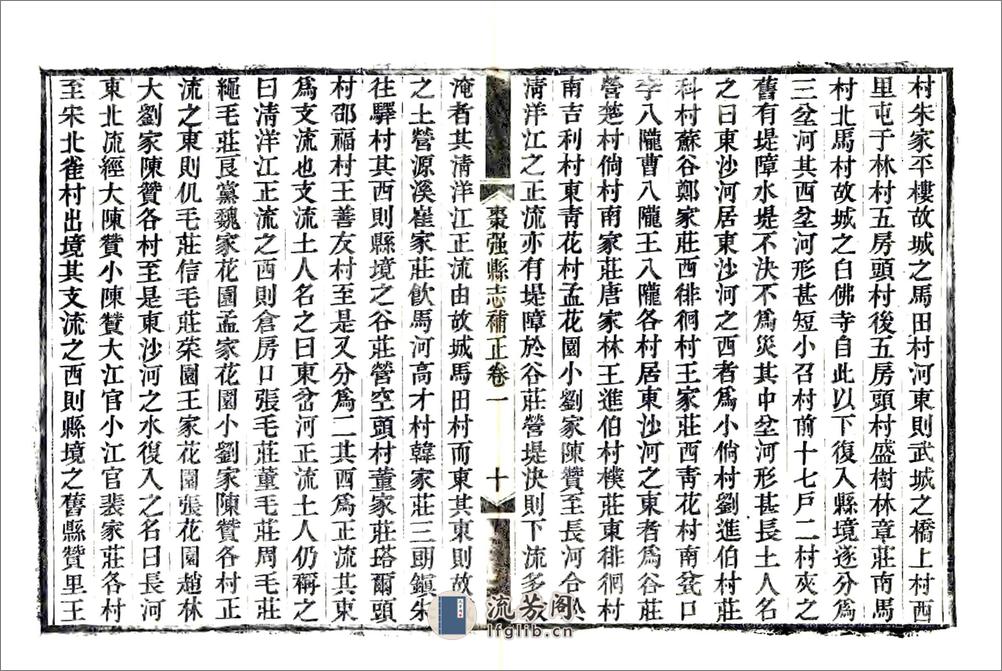 村朱家平樓故城之馬田村河東則武城之橋上村西
里屯于林村五房頭村後五房頭村盛樹林章莊南馬
村北馬村故城之白佛寺自此以下復入縣境遂分爲
三岔河其西岔河形甚短小召村前十七戶二村夾之
舊有堤障水堤不決不爲災其中岔河形甚長土人名
之曰東沙河居東沙河之西者爲小倘村劉進伯村莊
科村蘇谷鄭家莊西徘徊村王家莊西靑花村南瓮口
李八隴曹八隴王八隴各村居東沙河之東者爲谷莊
營楚村倘村南家莊唐家林王進伯村樸莊東徘徊村
南吉利村東靑花村孟花園小劉家陳贊至長河合於
淸洋江之正流亦有堤障於谷莊營堤決則下流多
棗强縣志補正卷一
十
淹者其淸洋江正流由故城馬田村而東其東則故
之土營源溪崔家莊飮馬河高才村韓家莊三朗鎭朱
往驛村其西則縣境之谷莊營空頭村董家莊塔爾頭
村邵福村王善友村至是又分爲二其西爲正流其東
爲支流也支流土人名之曰東岔河正流土人仍稱之
曰淸洋江正流之西則倉房口張毛莊董毛莊周毛莊
繩毛莊良黨魏家花園孟家花園小劉家陳贊各村正
流之東則仉毛莊信毛莊榮園王家花園張花園趙林
大劉家陳贊各村至是東沙河之水復入之名曰長河
東北流經大陳贊小陳贊大江官小江官裴家莊各村
至宋北雀村出境其支流之西則縣境之舊縣贊里王
流芳阁
lfglib.cn